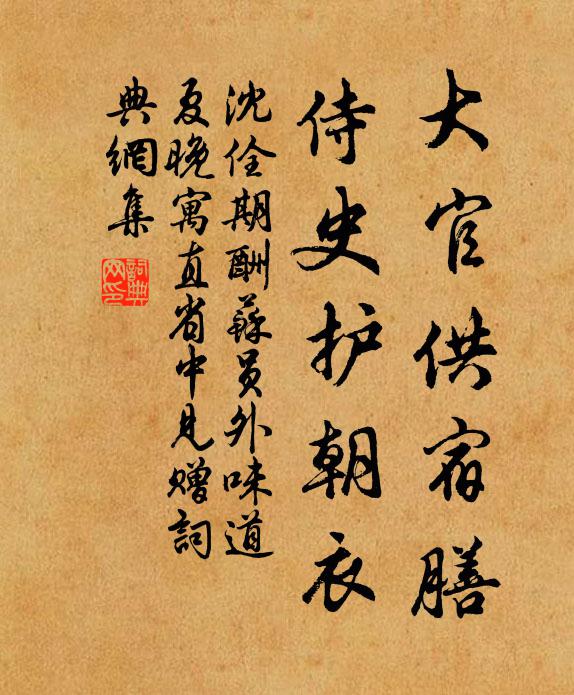 大官供宿膳
侍史护朝衣
沈佺期酬蘇员外味道
夏晚寓直省中见赠詞
典網集
詞典
网印